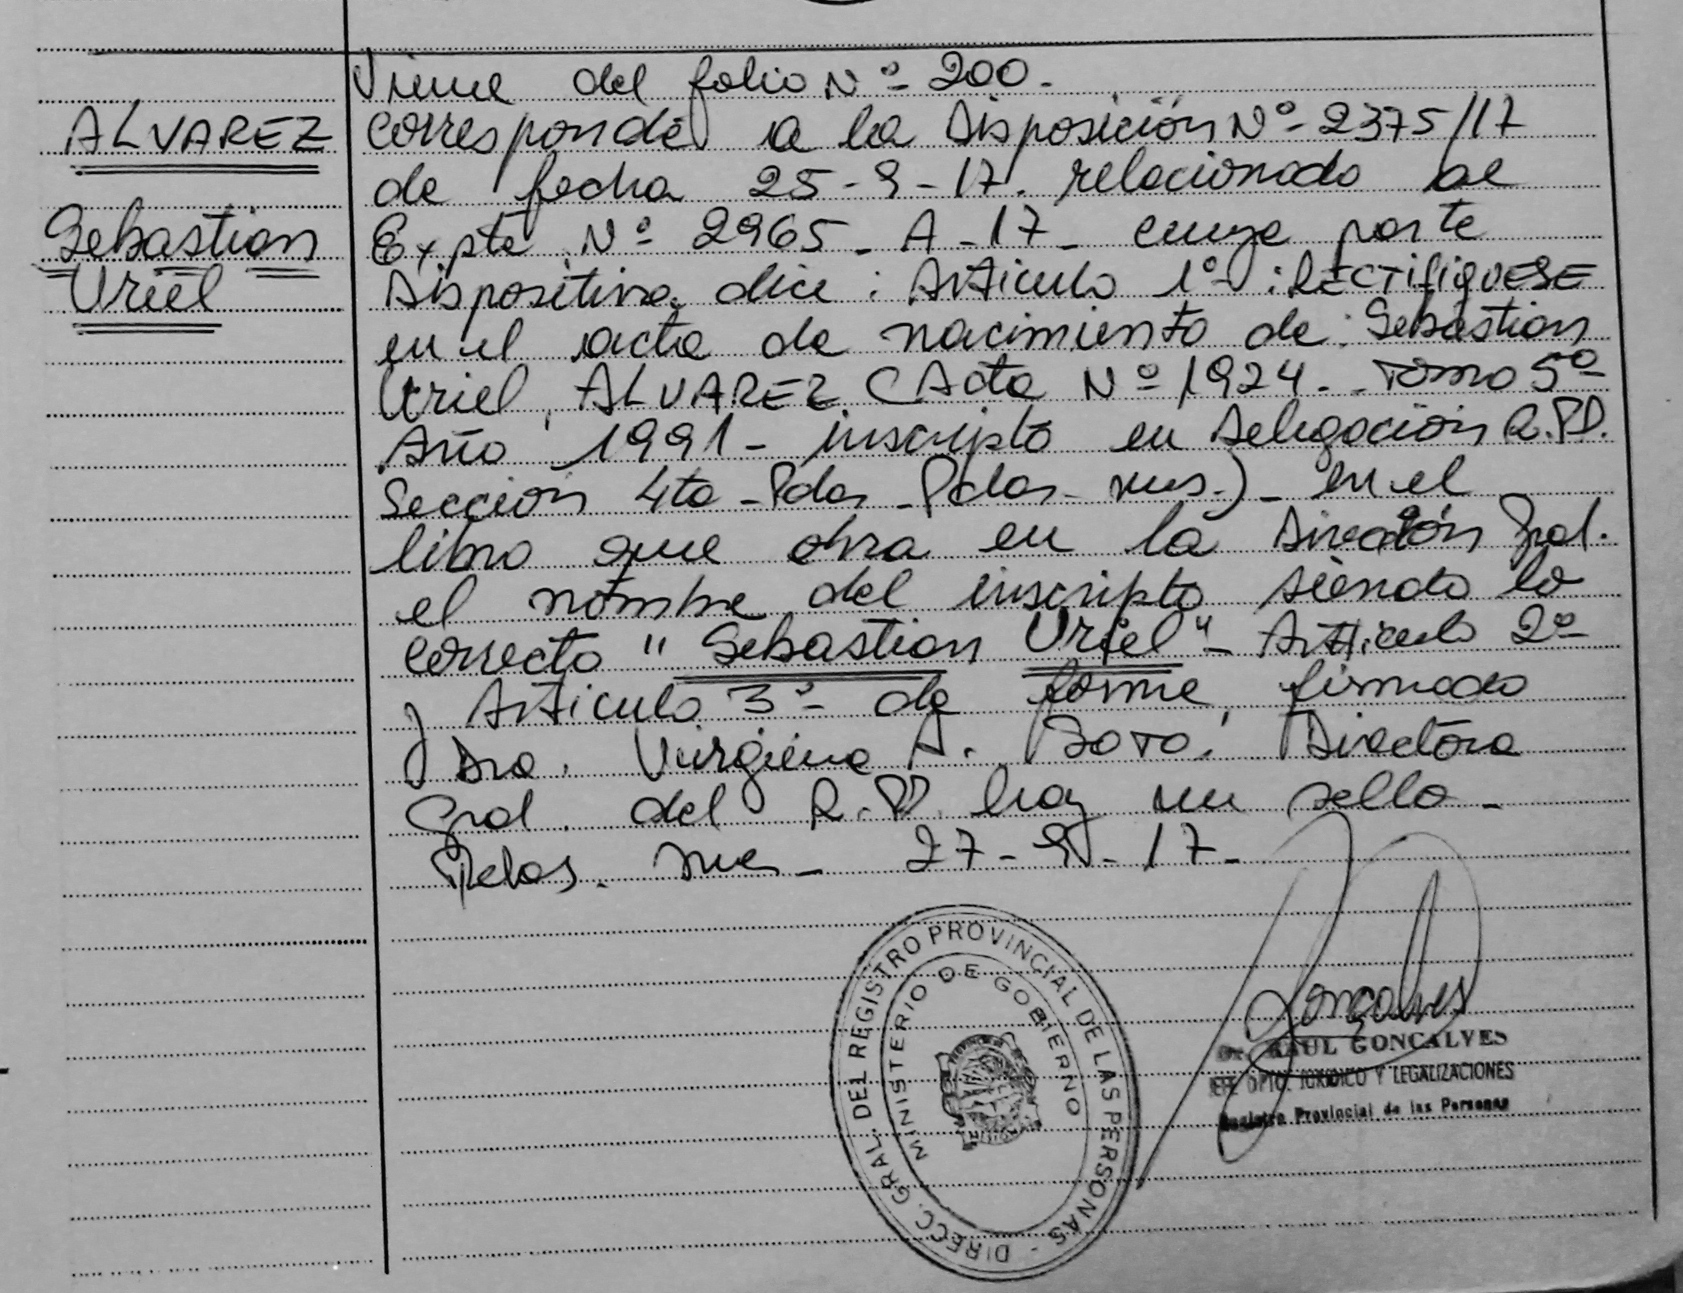 Viene del folio Nº 200.
ALVAREZ
Sebastian
Uriel
corresponde a la Disposición Nº 2375/17
de fecha 25-9-17. relacionado al
Expte. Nº 2965-A-17- cuya parte
Dispositiva dice: Articulo 1º: RECTIFIQUESE
en el acta de nacimiento de: Sebastian
Uriel, ALVAREZ (Acta Nº 1924- Tomo 5º
Año 1991- inscripto en Delegación R.P.P.
Sección 4ta - Pdas - Pdas - mns.)- en el
libro que obra en la Dirección Gral.
el nombre del inscripto siendo lo
correcto "Sebastian Uriel"- Articulo 2º
y Articulo 3º de forma, firmado
Dra. Virginia A. Boro. Directora
Gral. del R.P.P. hay un sello-
Pdas. mns- 27-9-17-
DIRECC. GRAL. DEL REGISTRO PROVINCIAL DE LAS PERSONAS -
MINISTERIO DE GOBIERNO
Gonçalves
Dr. RAUL GONCALVES
DPTO. JURIDICO Y LEGALIZACIONES
Registro Provincial de las Personas